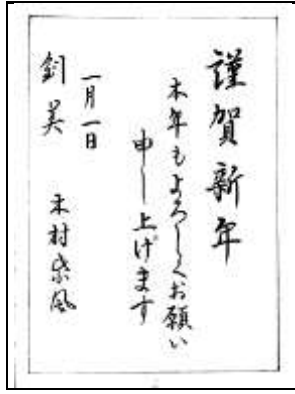 謹賀新年
本年もよろしくお願い
申し上げます
一月一日
釗美
木村柴風